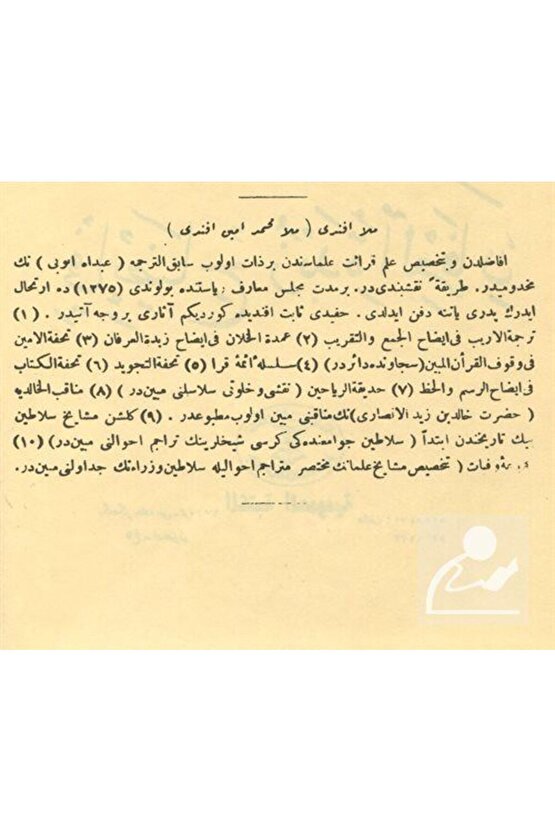 ملا افندی ( ملا محمد امین افندی )
افاضلدن و بتخصیص علم قرائت علماسندن برذات اولوب سابق الترجمه ( عبداﷲ ایوبی ) نك
مخدومیدر. طریقةً نقشبندی در. برمدت مجلس معارف ریاستنده بولوندی (١٢٧٥) ده ارتحال
ایدرك پدری یاننه دفن ایدلدی. حفیدی ثابت افندیده كوردیكم آثاری بروجه آتیدر. (١)
ترجمة الاریب فی ایضاح الجمع والتقریب (٢) عمدة الخلان فی ایضاح زبدة العرفان (٣) تحفة الامین
فی وقوف القرآن المبین (سجاونده دائردر) (٤) سلسلهٔ ائمهٔ قرا (٥) تحفة التجوید (٦) تحفة الكتاب
فی ایضاح الرسم والخط (٧) حدیقة الریاحین ( نقشی و خلوتی سلاسلنی مبین در ) (٨) مناقب الخالدیه
( حضرت خالد بن زید الانصاری ) نك مناقبنی مبین اولوب مطبوعدر. (٩) كلشن مشایخ سلاطین
بیك تاریخندن ابتدأ ( سلاطین جوامعنده كی كرسی شیخلرینك تراجم احوالنی مبین در) (١٠)
وفیات ( بتخصیص مشایخ علمانك مختصر تراجم احوالیله سلاطین و وزراء نك جداولنی مبین در.